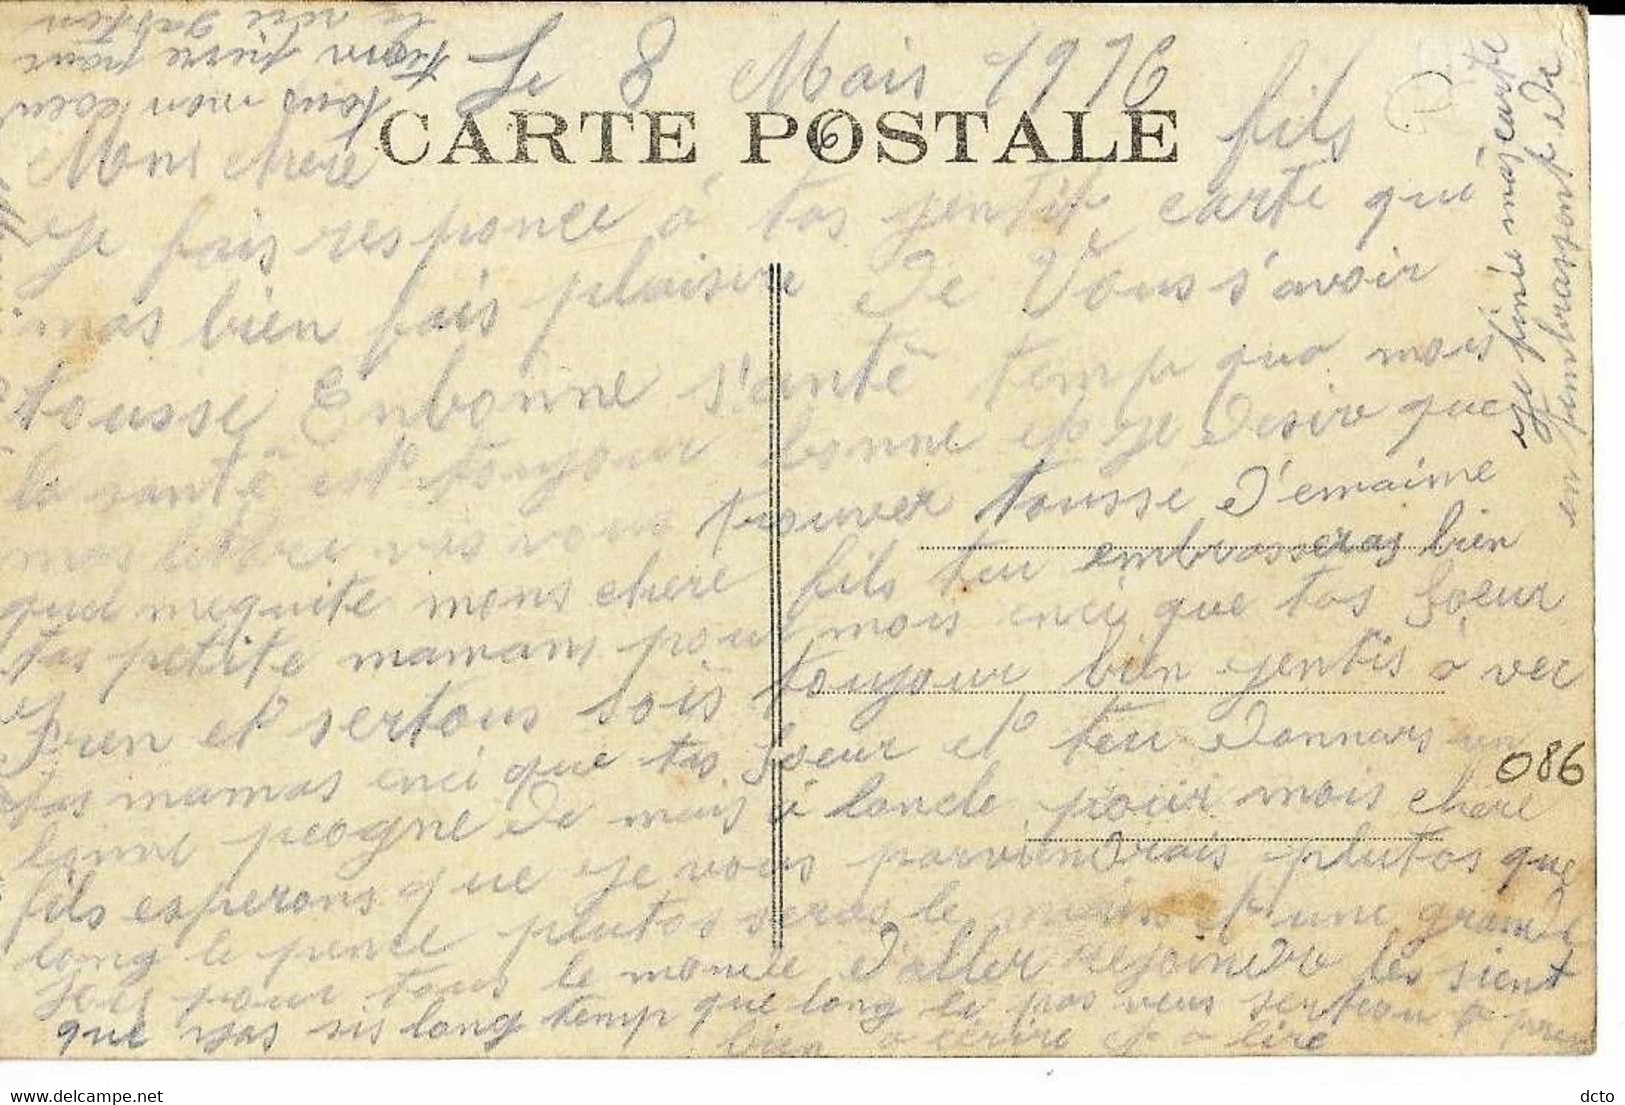 Le 8 Mais 1916
CARTE POSTALE
6
Mons chere fils
Je fais responce à tas jentil carte qui
mas bien fais plaisire de Vous s'avoir
tousse Enbonne s'antê temp qua mois
la santê est toujour bonne et je desire que
mas lettre vous trouver tousse d'emaime
qud mequite mons chere fils teu embrasseras bien
tas petite mamans pour mois enci que tas soeur
et sertous sois toujour bien jentis a vec
tas mamas enci que tas soeur et teu donnars un
bonne peogne de mais à loncle pour mois chere
fils esperons que je vous parviendrais plutos que
long le pence plutos seras le et une grande
pour tous le monde d'aller rejoindre les sient
que sis long temp que long le pas veus
bien a ecrire et a lire
Je finie mas carte
en t'embrassant de
tous mon coeur
ton pere pour
la vie
086